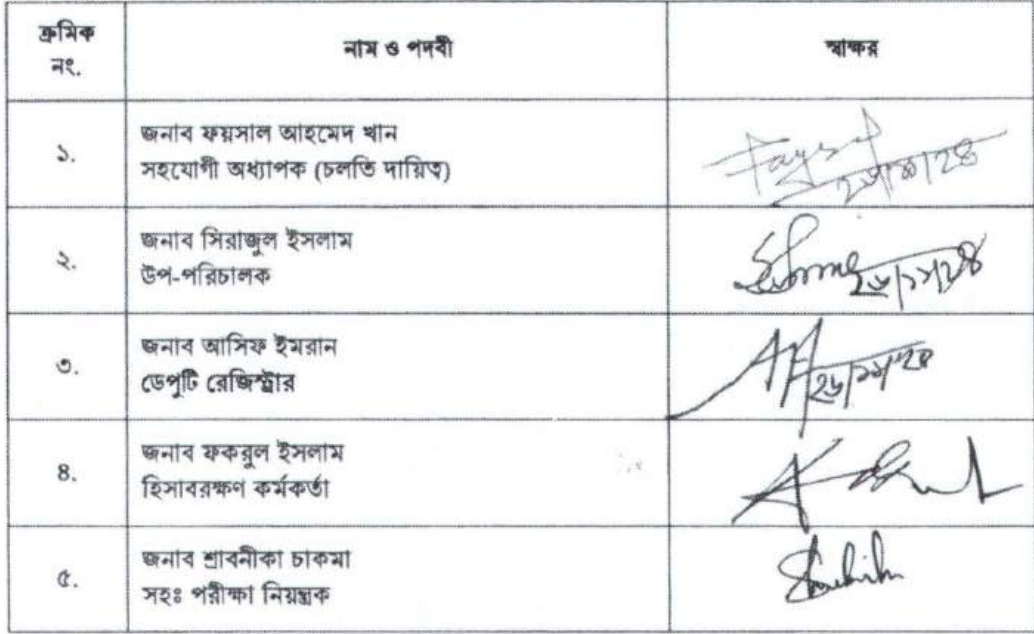 ক্রমিক নং. নাম ও পদবী স্বাক্ষর
১. জনাব ফয়সাল আহমেদ খান
সহযোগী অধ্যাপক (চলতি দায়িত্ব)
২. জনাব সিরাজুল ইসলাম
উপ-পরিচালক
২৬/১১/২৪
৩. জনাব আসিফ ইমরান
ডেপুটি রেজিস্ট্রার
২৬/১১/২৪
৪. জনাব ফকরুল ইসলাম
হিসাবরক্ষণ কর্মকর্তা
৫. জনাব শ্রাবনীকা চাকমা
সহঃ পরীক্ষা নিয়ন্ত্রক